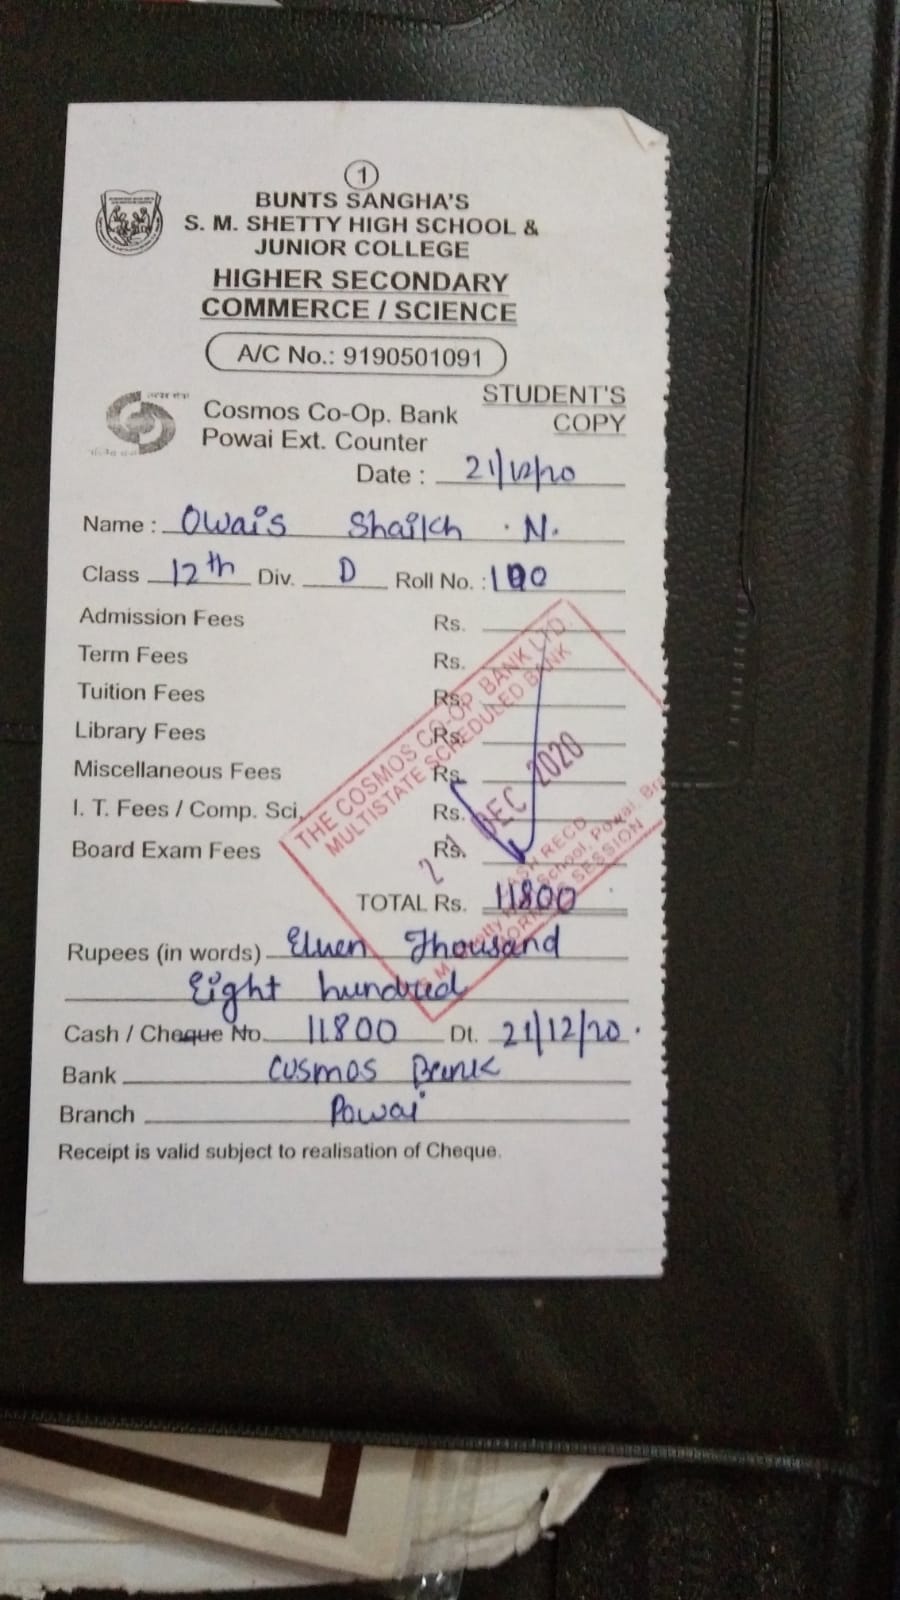 1
BUNTS SANGHA'S
S. M. SHETTY HIGH SCHOOL &
JUNIOR COLLEGE
HIGHER SECONDARY
COMMERCE / SCIENCE
A/C No.: 9190501091
STUDENT'S
COPY
Cosmos Co-Op. Bank
Powai Ext. Counter
Date : 21/12/20
Name : Owais Shaikh . N.
Class 12th Div. D Roll No. : 100
Admission Fees Rs.
Term Fees Rs.
Tuition Fees Rs.
Library Fees Rs.
Miscellaneous Fees Rs.
I. T. Fees / Comp. Sci. Rs.
Board Exam Fees Rs.
THE COSMOS CO-OP BANK LTD.
MULTISTATE SCHEDULED BANK
21 DEC 2020
CASH RECD
School, Powai, Br
SESSION
TOTAL Rs. 11800
Rupees (in words) Eluen Thousand
Eight hundred
Cash / Cheque No. 11800 Dt. 21/12/20.
Bank Cosmos Bank
Branch Powai
Receipt is valid subject to realisation of Cheque.